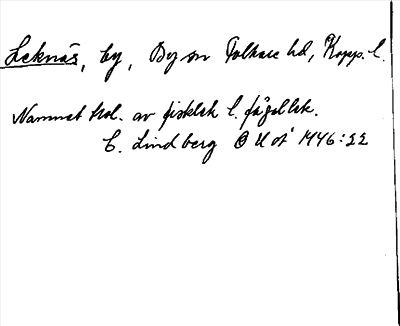 Leknäs, by, By sn Folkare hd, Kopp. l.
Namnet trol. av fisklek l. fågellek.
C. Lindberg OUoÄ 1946:22